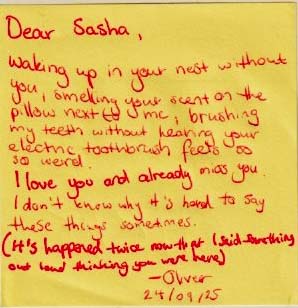 Dear Sasha,
Waking up in your nest without
you, smelling your scent on the
pillow next to me, brushing
my teeth without hearing your
electric toothbrush feels so
so weird.
I love you and already miss you.
I don't know why it's hard to say
these things sometimes.
(It's happened twice now that I said something
out loud thinking you were here)
-Oliver
24/09/25